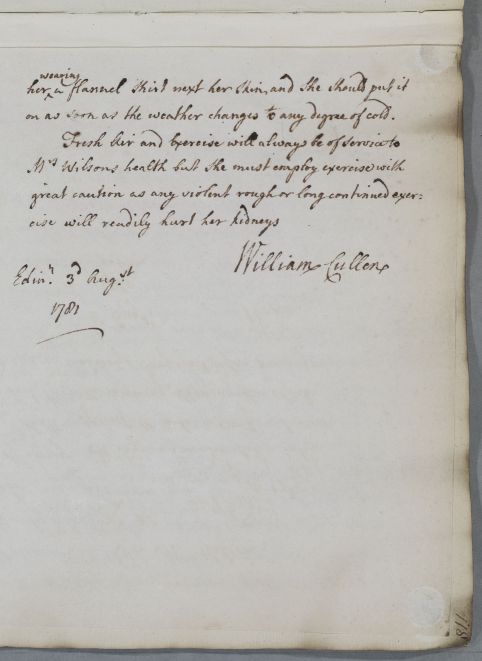 wearing
her ^ a flannel Shirt next her Skin, and She should put it
on as soon as the weather changes to any degree of cold.
Fresh Air and Exercise will always be of service to
Mrs Wilsons health but She must employ exercise with
great caution as any violent rough or long continued exer=
cise will readily hurt her kidneys
William Cullen
Edinr. 3d Augst.
1781
118